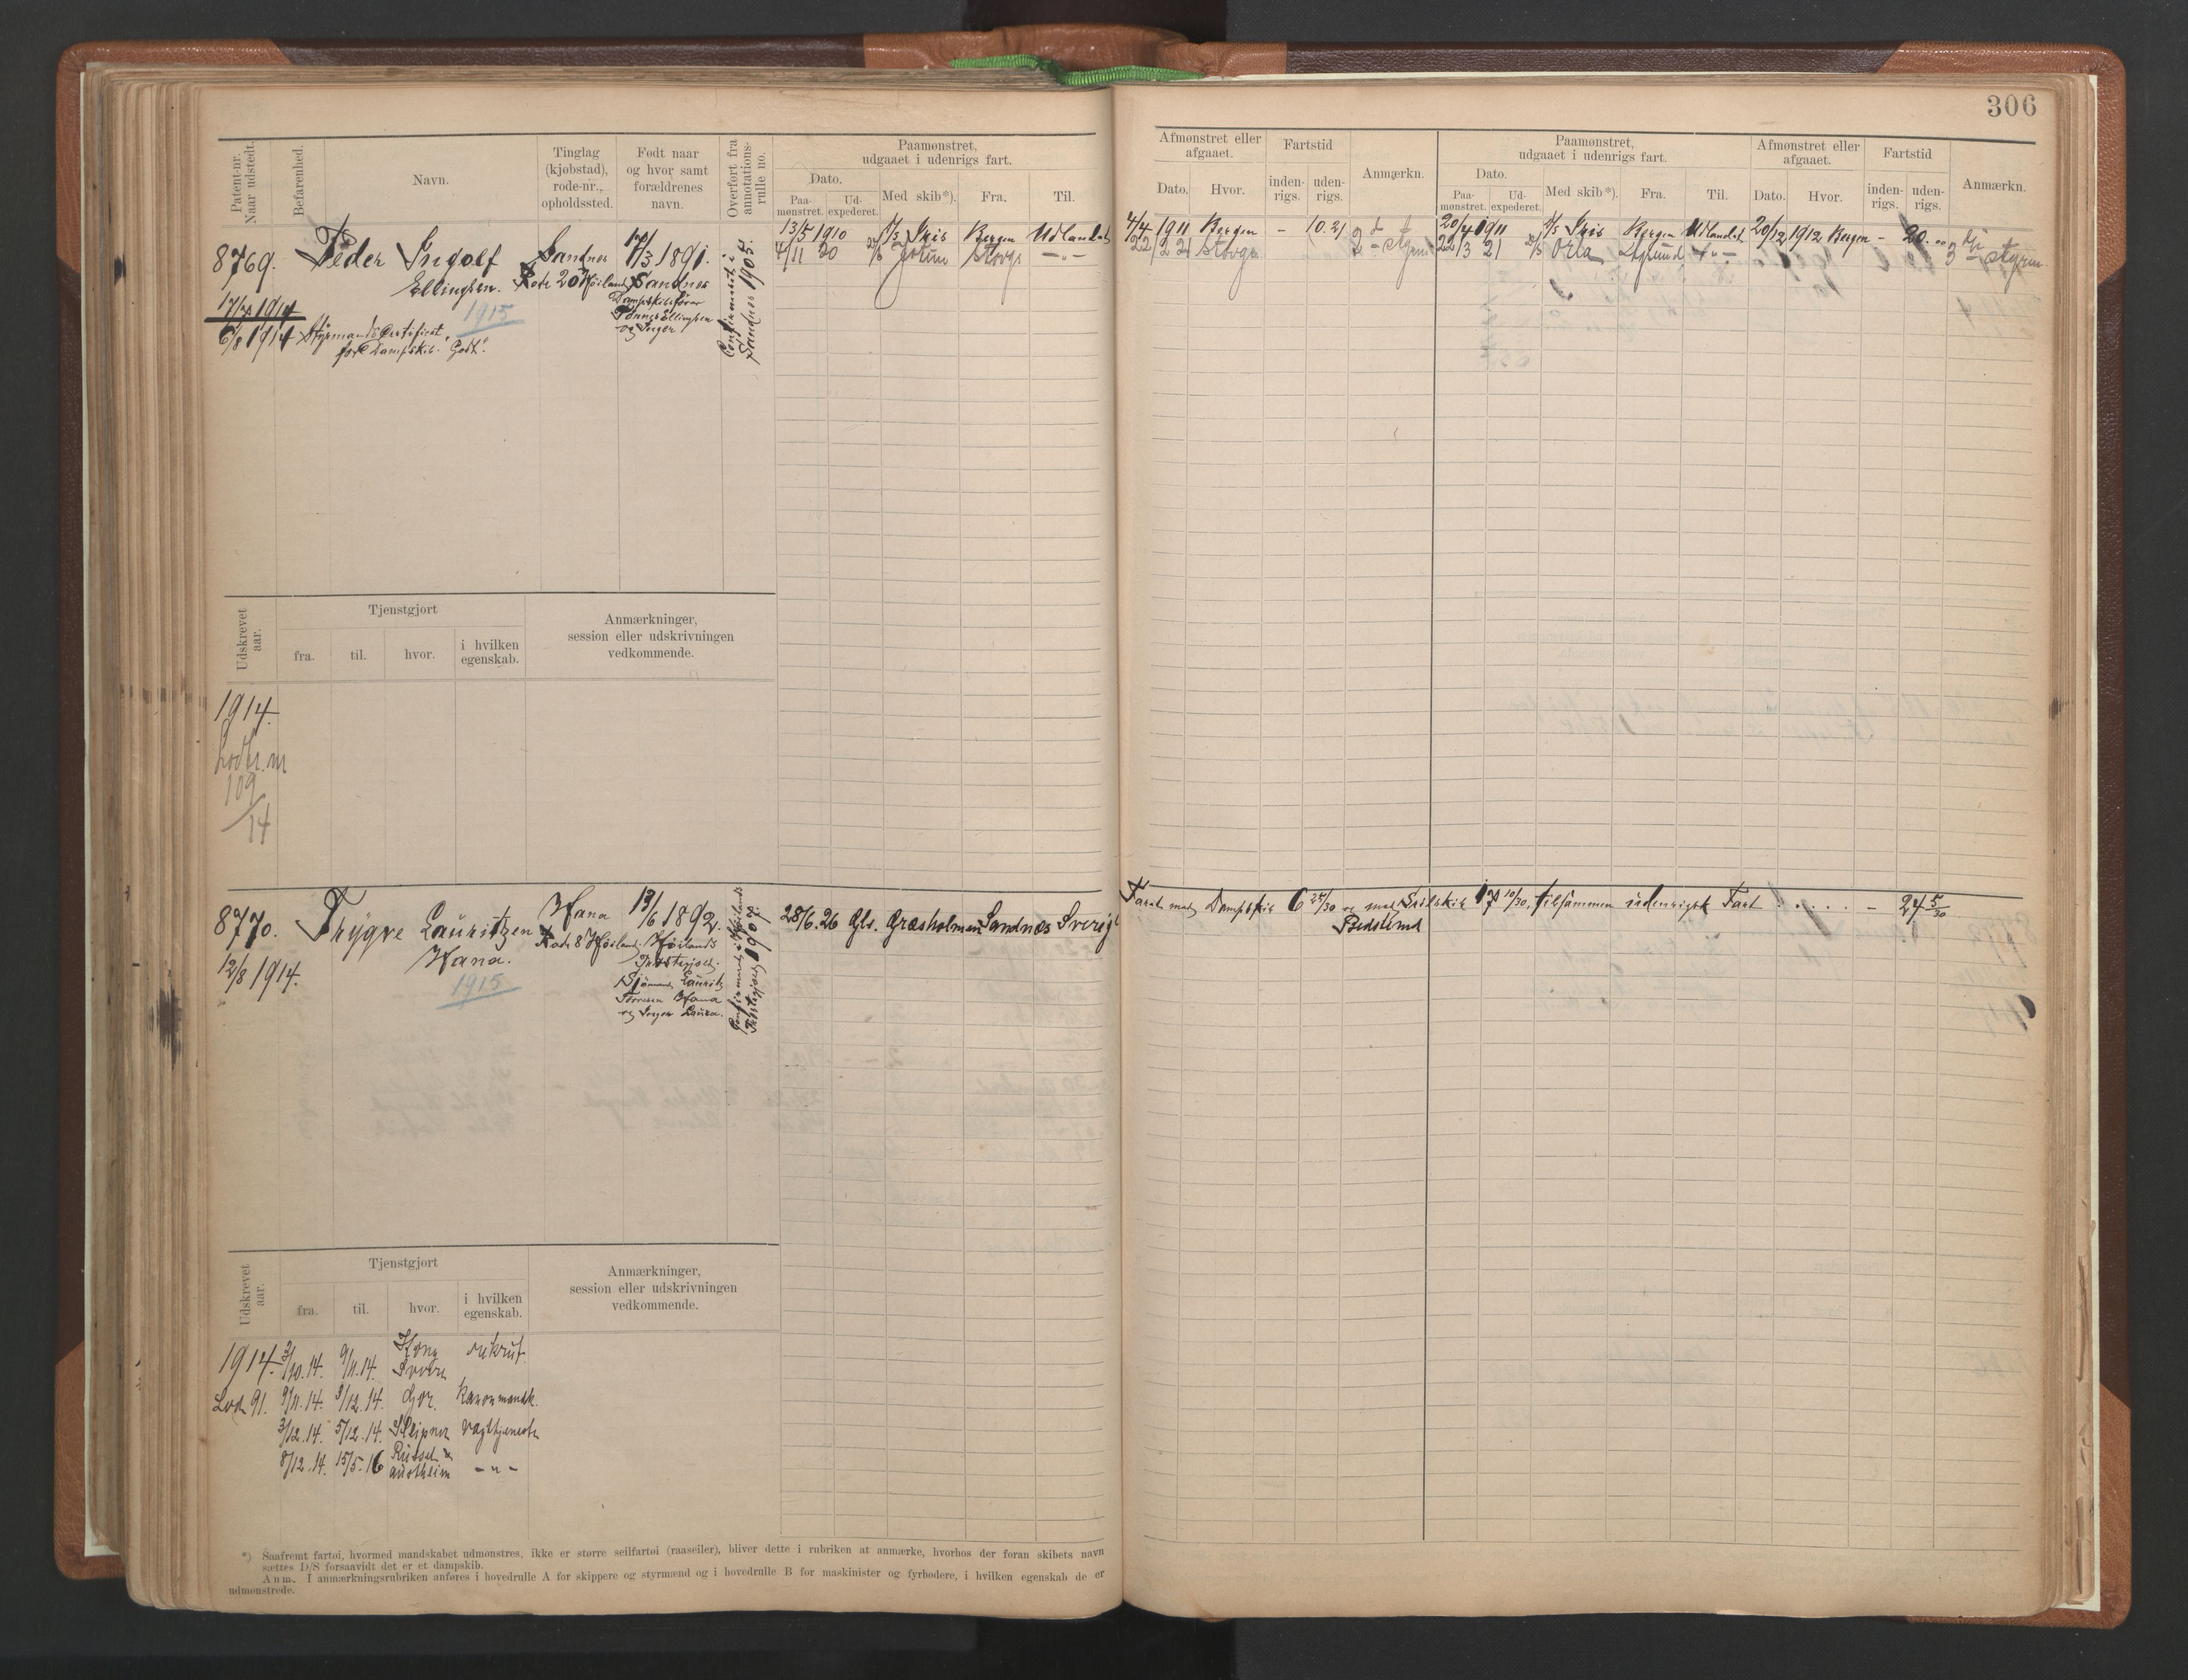 306
Patent-nr. Naar udstedt.
Befarenhed.
Navn.
Tinglag (kjøbstad), rode-nr., opholdssted.
Født naar og hvor samt forældrenes navn.
Overført fra annotations- rulle no.
Paamønstret, udgaaet i udenrigs fart.
Dato.
Paa- mønstret.
Ud- expederet.
Med skib*).
Fra.
Til.
Afmønstret eller afgaaet.
Dato.
Hvor.
Fartstid
inden- rigs.
uden- rigs.
Anmærkn.
Paamønstret, udgaaet i udenrigs fart.
Dato.
Paa- mønstret.
Ud- expederet.
Med skib*).
Fra.
Til.
Afmønstret eller afgaaet.
Dato.
Hvor.
Fartstid
inden- rigs.
uden- rigs.
Anmærkn.
8769.
17/7 1914
6/8 1914
Peder Ingolf
Ellingsen.
1915
Styrmandscertifikat
for Dampskib. "Godt".
Sandnes
Rode 20 Høiland
17/3 1891.
Sandnes
Dampskibsfører
Ellingsen
og Inger
Confirmeret i
Sandnes 1905.
13/5 1910 D/S Iris Bergen Udlandet
4/11 20 Jotun Stavgr —"—
4/4 1911 Bergen - 10.21
22/2 21 Stavgr 2den Styrm
20/4 1911 D/S Iris Bergen Udlandet 20/12 1912 Bergen - 20.
22/3 21 Orla
Styrm
Udskrevet aar.
Tjenstgjort
fra.
til.
hvor.
i hvilken egenskab.
Anmærkninger, session eller udskrivningen vedkommende.
1914.
Lodtr. nr
109
/14
8770.
12/8 1914.
Trygve Lauritzen
Hana.
1915
Hana
Rode 8 Høiland.
13/6 1892.
Høilands
Præstegjeld.
Sjømand Lauritz
Hana
og Inger Laura.
Confirmeret i Høilands
Præstegjeld 1907.
28/6.26 Gls. Græsholmen Sandnes Sverige
Faret med Dampskib 6 27/30 og med Seilskib 17 10/30, tilsammen udenrigsk Fart . . . . - 24 5/30
Bedstemd
Udskrevet aar.
Tjenstgjort
fra.
til.
hvor.
i hvilken egenskab.
Anmærkninger, session eller udskrivningen vedkommende.
1914. 3/10.14. 9/11.14. Kong Sverre rekrut.
Lod 91. 9/11.14. 3/12.14. Gor. kanonmandsk.
3/12.14. 5/12.14. Sleipner vagttjeneste
8/12.14. 15/5.16 austheim -"-
*) Saafremt fartøi, hvormed mandskabet udmønstres, ikke er større seilfartøi (raaseiler), bliver dette i rubriken at anmærke, hvorhos der foran skibets navn
sættes D/S forsaavidt det er et dampskib.
Anm. I anmærkningsrubriken anføres i hovedrulle A for skippere og styrmænd og i hovedrulle B for maskinister og fyrbødere, i hvilken egenskab de er
udmønstrede.